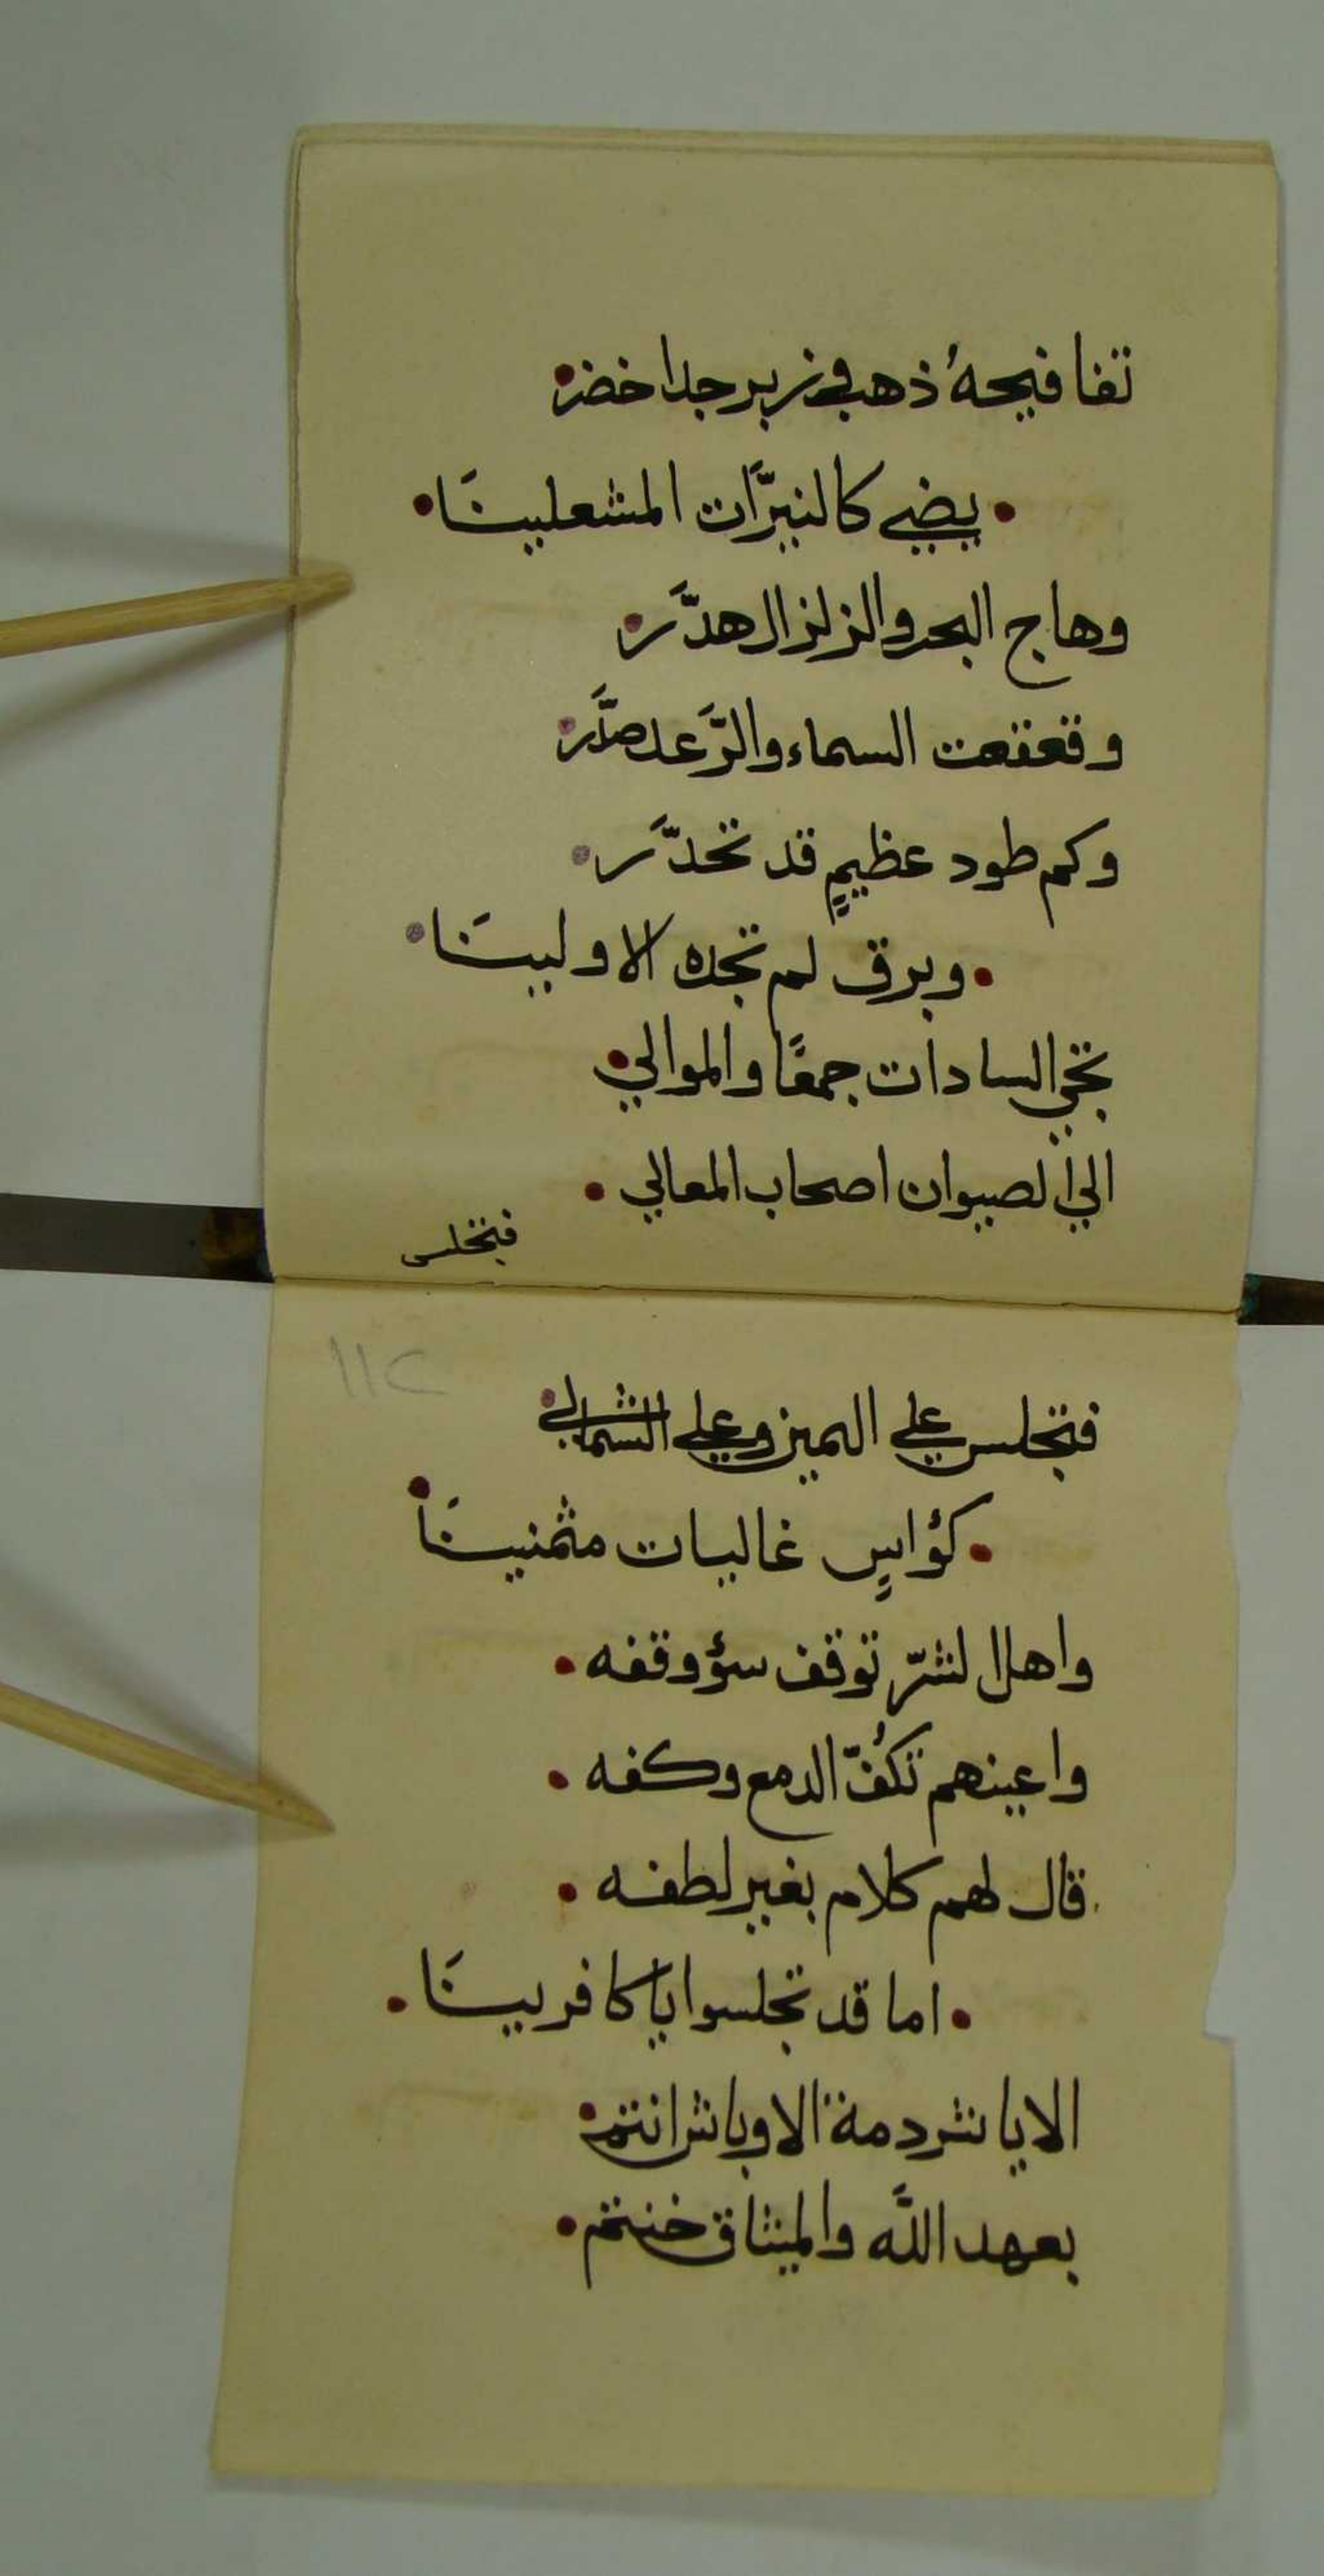 تفافيحهُ ذهب في زبرجد اخضر •
• يضي كالنيرَّات المشعلينَا •
وهاج البحر والزلزال هدَّر •
وقعقعت السماء والرَّعد صدَّر •
وكم طود عظيمٍ قد تحدَّر •
• وبرق لم تجده الاولينَا •
تجي السادات جمعًا والموالي •
الي الصيوان اصحاب المعالي •
فتجلس
١١٢
فتجلس علي اليمين وعلي الشمالي •
• كؤاسٍ غاليات مثمنينَا •
واهل الشرّ توقف سؤوقفه •
واعينهم تكُفّ الدمع وكفه •
قال لهم كلام بغير لطفه •
• اما قد تجلسوا يا كافرينَا •
الا يا شردمة الاوباش انتم •
بعهد اللَّه والميثاق خنتم •